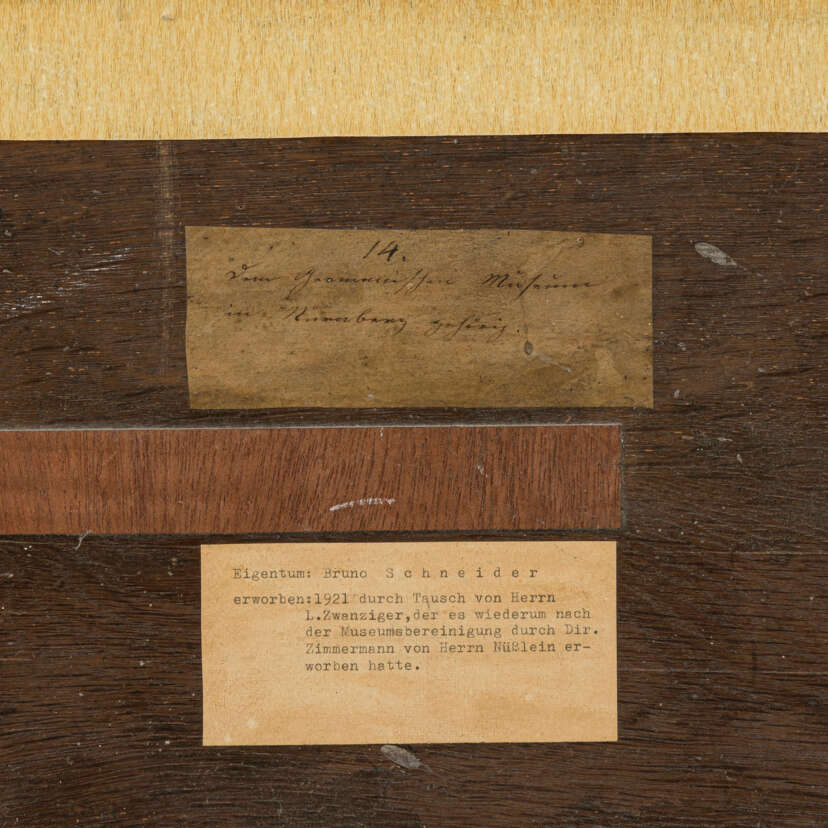 14.
Dem Germanischen Museum
in Nürnberg gehörig.
Eigentum: Bruno S c h n e i d e r
erworben:1921 durch Tausch von Herrn
L.Zwanziger,der es wiederum nach
der Museumsbereinigung durch Dir.
Zimmermann von Herrn Nüßlein er-
worben hatte.